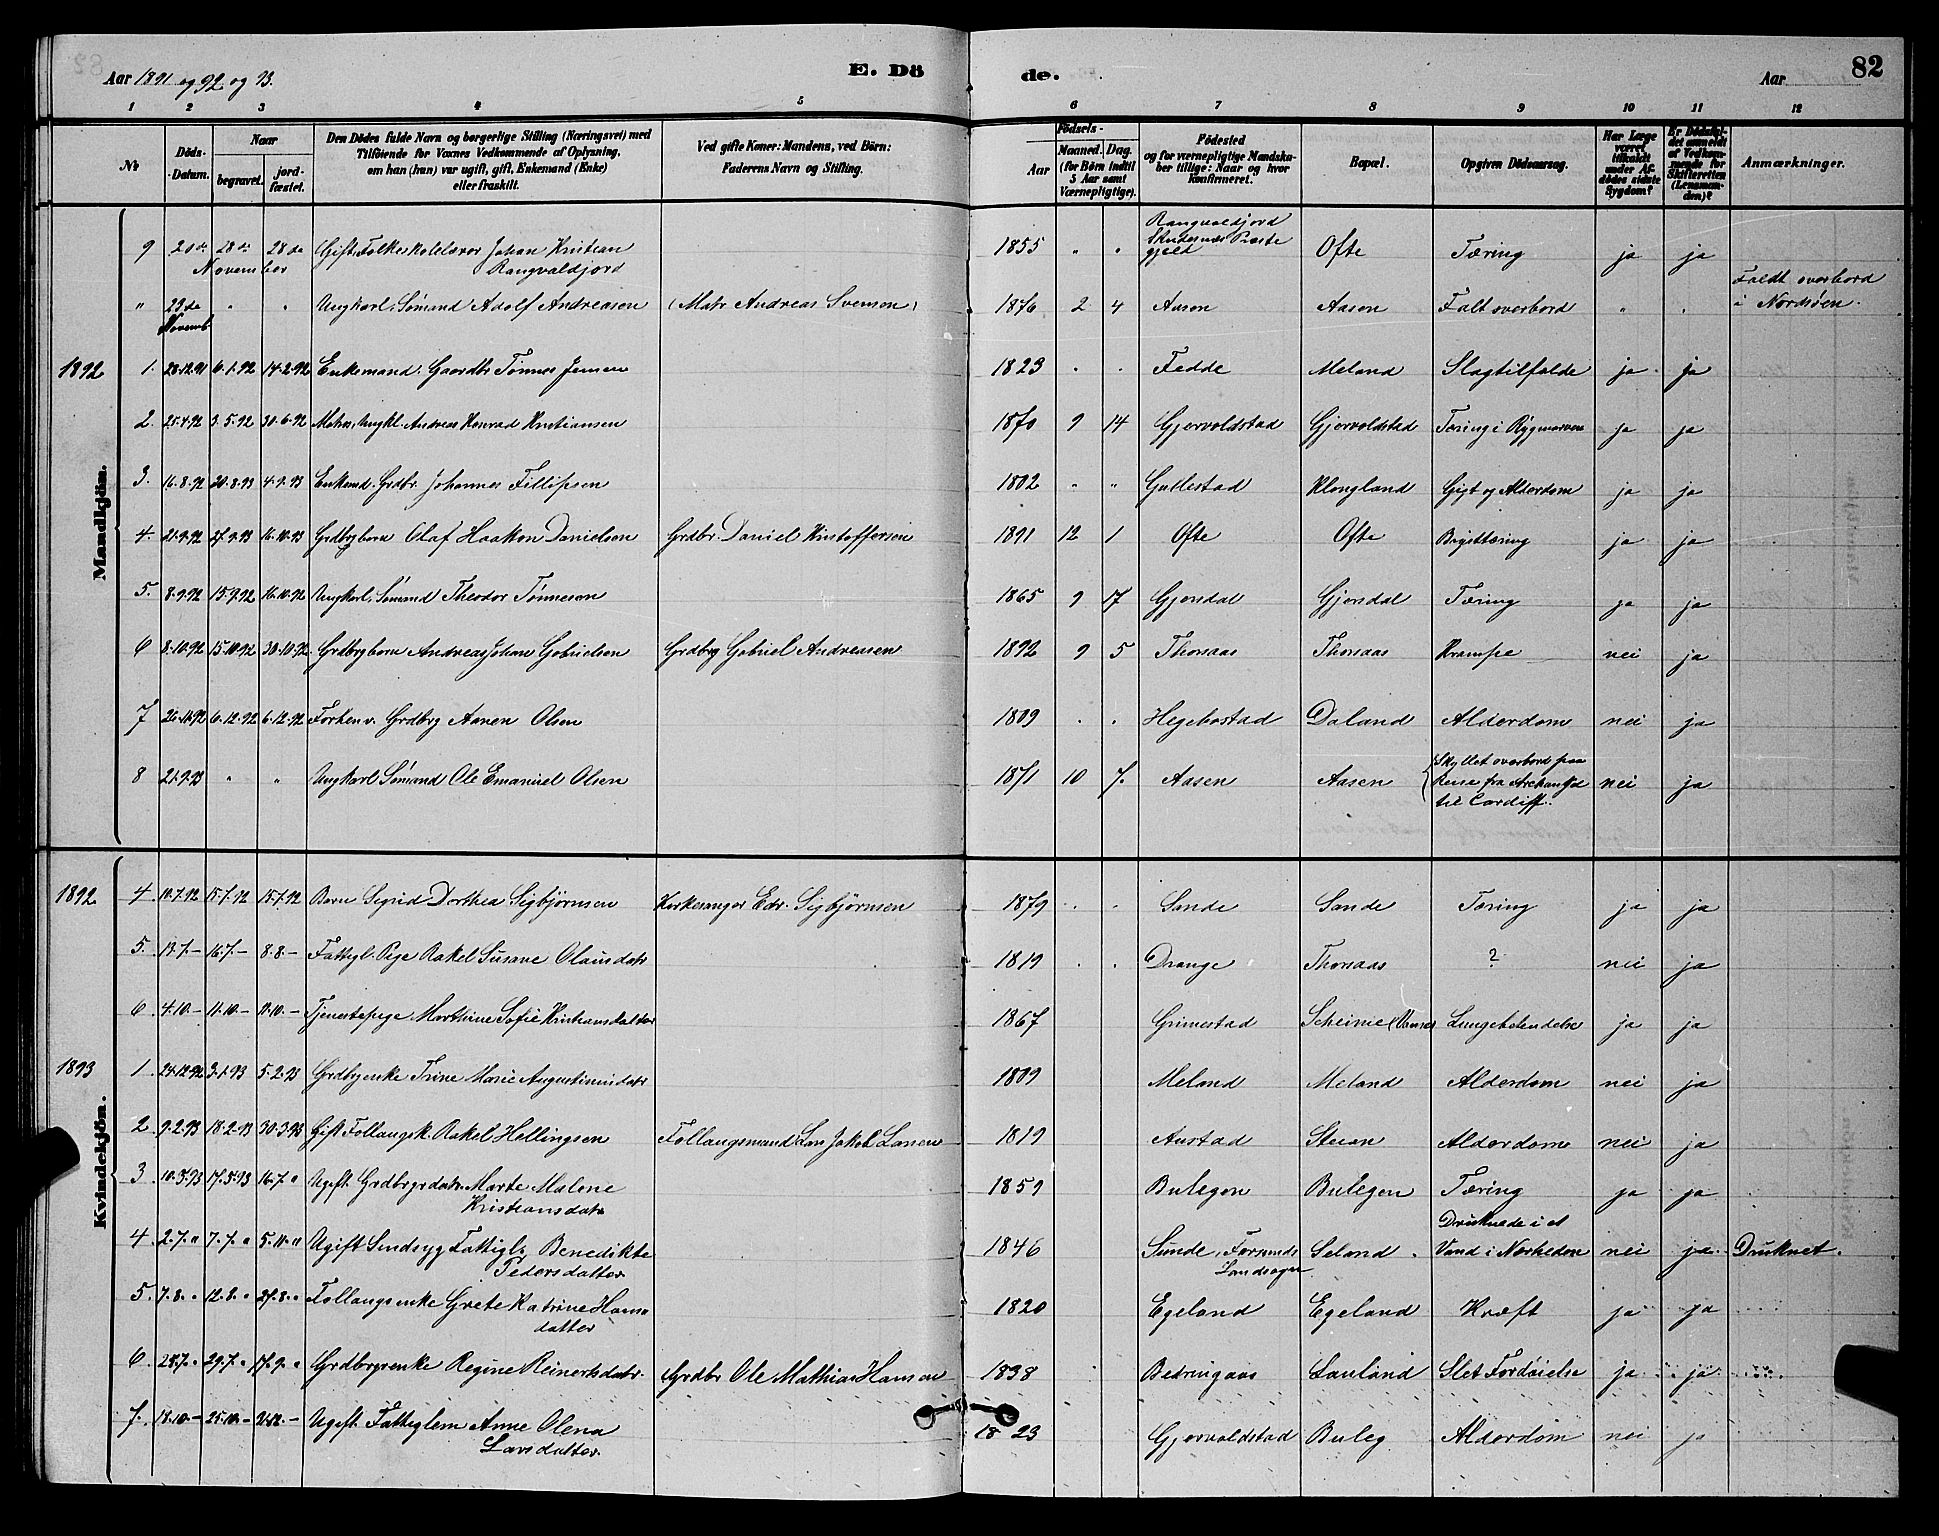 Aar 1891 og 92 og 93. E. Dö de. Aar 82
1 2 3 4 5 6 7 8 9 10 11 12
No Döds-Datum. Naar begravet. jordfæstet. Den Dödes fulde Navn og borgerlige Stilling (Næringsvei) med Tilföiende for Voxnes Vedkommende af Oplysning, om han (hun) var ugift, gift, Enkemand (Enke) eller fraskilt. Ved gifte Koner: Mandens, ved Börn: Faderens Navn og Stilling. Födsels- Aar Maaned. Dag. (for Börn indtil 5 Aar samt Værnepligtige). Födested og for værnepligtige Mandskaber tillige: Naar og hvor konfirmeret. Bopæl. Opgiven Dödsaarsag. Har Læge været tilkaldt under Afdödes sidste Sygdom? Er Dödsfaldet anmeldt af Vedkommende for Skifteretten (Lensmanden)? Anmærkninger.
Mandkjön.
9 20de 28de 28de November Gift Folkeskolelærer Johan Kristian Rangvaldjord 1855 " " Rangvaldjord Skudesnæs Præstegjeld Ofte Tæring ja ja
" 23de Novemb " " Ungkarl, Sømand Adolf Andreasen (Matr Andreas Svensen) 1876 2 4 Aasen Aasen Falt overbord " " Faldt overbord i Nordsøen.
1892 1. 28.12.91 6.1.92 14.2.92 Enkemand. Gaardbr Tønnes Jensen 1823 " " Fedde Meland Slagtilfælde ja ja
2. 25.4.92 3.5.92 30.6.92 Matros, Ungkl. Andreas Konrad Kristiansen 1870 9 14 Gjervoldstad Gjervoldstad Tæring i Rygmarven ja ja
3. 16.8.92 20.8.93 4.9.93 Enkemd. Grdbr. Johannes Fillipsen 1802 " " Gullestad Klongland Gigt og Alderdom ja ja
4. 21.9.92 27.9.93 16.10.93 Grdbrgbarn Olaf Haakon Danielsen Grdbr. Daniel Kristoffersen 1891 12 1 Ofte Ofte Brysttæring ja ja
5. 8.9.92 15.9.92 16.10.92 Ungkarl, Sømand Theodor Tønnesen 1865 9 17 Gjersdal Gjersdal Tæring ja ja
6 8.10.92 15.10.92 30.10.92 Grdbrgbarn Andreas Johan Gabrielsen Grdbrg Gabriel Andreassen 1892 9 5 Thorsaas Thorsaas Krampe nei ja
7 26.11.92 6.12.92 6.12.92 Forhenv. Grdbrg Aanen Olsen 1809 " " Hegebostad Daland Alderdom nei ja
8 21.9.93 " " Ungkarl Sømand Ole Emanuel Olsen 1871 10 7. Aasen Aasen Skyllet overbord paa Reise fra Archangel til Cardiff. nei ja
Kvindekjön.
1892 4 10.7.92 15.7.92 15.7.92 Barn Sigrid Dorthea Sigbjørnsen Kirkesanger Edv. Sigbjørnsen 1879 " " Sande Sande Tæring ja ja
5. 13.7 – 16.7 – 8.8 – Fattigl. Pige Rakel Susane Olausdatr 1819 " " Drange Thorsaas ? nei ja
6 4.10 – 11.10 – 11.10 – Tjenestepige Marthine Sofie Kristiansdatter 1867 Grimestad (Vanse) Lungebetændelse ja ja
1893 1 24.12.92 3.1.93 5.2.93 Grdbrgenke Trine Marie Augustinusdatr 1809 Meland Meland Alderdom nei ja
2 9.2.93 18.2.93 30.3.93 Gift Follaugsk. Rakel Hellingsen Follaugsmand Lars Jakob Larsen 1819 Austad Alderdom nei ja
3 10.5.93 17.5.93 16.7 " Ugift Grdbrgrdatr. Marte Malene Kristiansdatr 1859 Bulegen Bulegen Tæring ja ja
4 2.7. " 7.7. " 5.11. " Ugift Sindsyg Fattigl. Benedikte Pedersdatter 1846 Sunde, Farsunds Landsogn Seland. Druknede i et Vand i Nærheden nei ja Druknet.
5. 7.8. " 12.8. " 27.8. " Follaugsenke Grete Katrine Hansdatter 1820 Egeland Egeland Kræft ja ja
6 25.7. " 29.7. " 17.9. " Grdbrgrenke Regine Reinertsdatr. Grdbr Ole Mathias Hansen 1838 Bedringaas Lauland Slet Fordøielse ja ja
7. 18.10 – 25.10 – Ugift Fattiglem Anne Olena Larsdatter. 1823 Gjervoldstad Buleg Alderdom nei ja